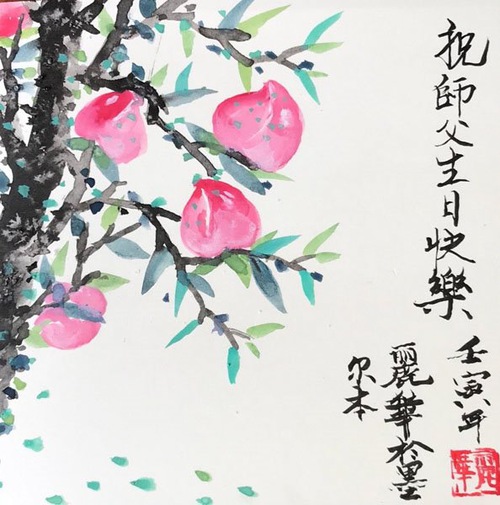 祝師父生日快樂
壬寅年
麗華於墨
尔本